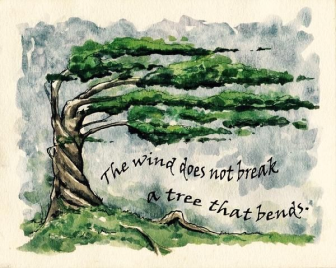 The wind does not break
a tree that bends.